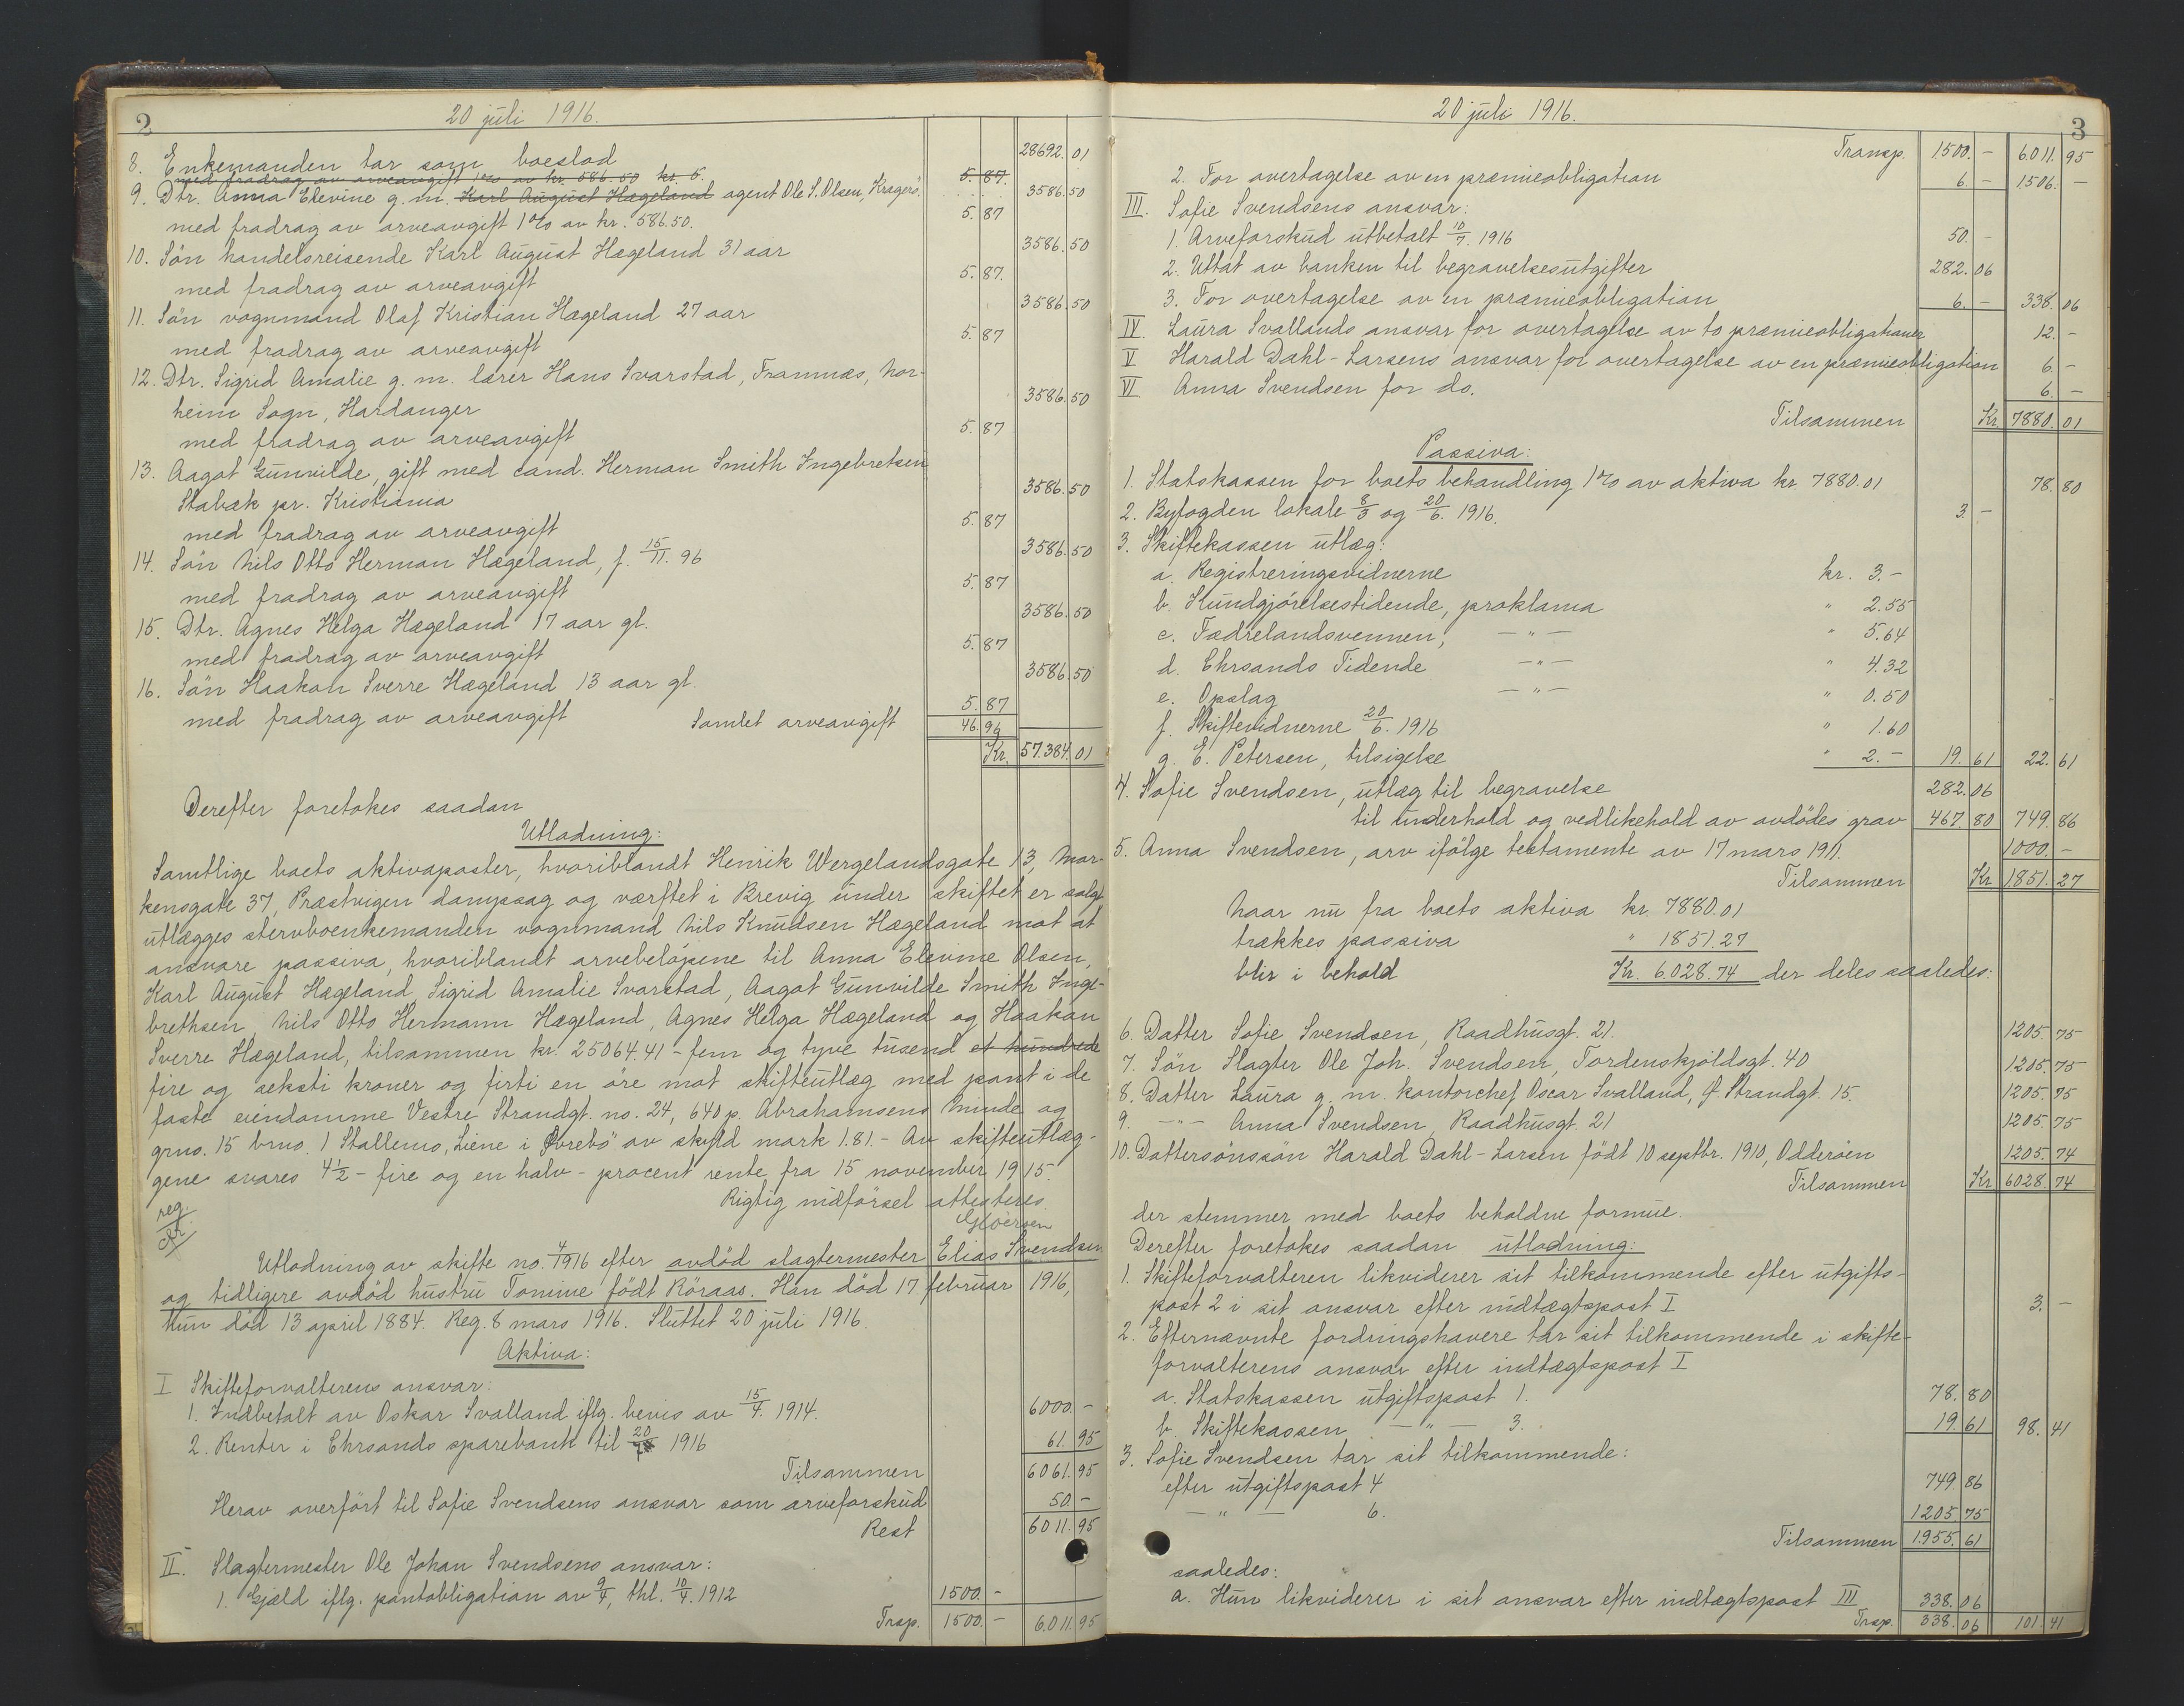 2
20 juli 1916.
28692.01
8. Enkemanden tar som boeslod
med fradrag av arveavgift 1% av kr. 586.50 kr. 5. 5.87.
9. Dtr. Anna Elevine g.m. Karl August Hægeland agent Ole S. Olsen, Kragerö. 3586.50
med fradrag av arveavgift 1% av kr. 586.50. 5.87
10. Sön handelsreisende Karl August Hægeland 31 aar 3586.50
med fradrag av arveavgift 5.87.
11. Sön vognmand Olaf Kristian Hægeland 27 aar 3586.50
med fradrag av arveavgift 5.87
12. Dtr. Sigrid Amalie g.m. lærer Hans Svarstad, Framnæs, Nor-
heim Sogn, Hardanger 3586.50
med fradrag av arveavgift 5.87
13. Aagot Gunvilde, gift med cand. Herman Smith Ingebretsen
Stabæk pr. Kristiania 3586.50
med fradrag av arveavgift 5.87
14. Sön Nils Otto Herman Hægeland, f. 15/11. 96 3586.50
med fradrag av arveavgift 5.87
15. Dtr. Agnes Helga Hægeland 17 aar gl. 3586.50
med fradrag av arveavgift 5.87
16. Sön Haakon Sverre Hægeland 13 aar gl. 3586.50
med fradrag av arveavgift 5.87
Samlet arveavgift 46.96
Kr. 57.384.01
Derefter foretokes saadan
Utlodning:
Samtlige boets aktivaposter, hvoriblandt Henrik Wergelandsgate 13, Mar-
kensgate 37, Præstvigen dampsag og værftet i Brevig under skiftet er solgt
utlægges stervboenkemanden vognmand Nils Knudsen Hægeland mot at
ansvare passiva, hvoriblandt arvebelöpene til Anna Elevine Olsen,
Karl August Hægeland, Sigrid Amalie Svarstad, Aagot Gunvilde Smith Inge-
brethsen, Nils Otto Hermann Hægeland, Agnes Helga Hægeland og Haakon
Sverre Hægeland, tilsammen kr. 25064.41 - fem og tyve tusend et hundrede
fire og seksti kroner og firti en öre mot skifteutlæg med pant i de
faste eiendomme Vestre Strandgt. no. 24, 640 p. Abrahamsens Minde og
grno. 15 brno. 1 Stallemo, Liene i Övrebö" av skyld mark 1.81. - Av skifteutlæg-
gene svares 4½ - fire og en halv - procent rente fra 15 november 1915.
Rigtig indförsel attesteres.
reg.
Utlodning av skifte no. 4/1916 efter avdöd slagtermester Elias Svendsen
og tidligere avdöd hustru Tomine födt Röraas. Han död 17 februar 1916,
Hun död 13 april 1884. Reg. 8 mars 1916. Sluttet 20 juli 1916.
Aktiva:
I Skifteforvalterens ansvar:
1. Indbetalt av Oskar Svalland iflg. bevis av 15/4. 1914. 6000.-
2. Renter i Chrsands sparebank til 20/7 1916 61.95
Tilsammen 6061.95
Herav overfört til Sofie Svendsens ansvar som arveforskud 50.-
Rest 6011.95
II. Slagtermester Ole Johan Svendsens ansvar:
1. Gjæld iflg. pantobligation av 9/4, thl. 10/4. 1912 1500.-
Trsp. 1500.- 6.011.95
20 juli 1916.
3
Transp. 1500.- 6.011.95
2. For overtagelse av en præmieobligation 6 - 1506.-
III. Sofie Svendsens ansvar:
1. Arveforskud utbetalt 10/7. 1916 50.-
2. Uttat av banken til begravelsesutgifter 282.06
3. For overtagelse av en præmieobligation 6.- 338.06
IV. Laura Svallands ansvar for overtagelse av to præmieobligationer 12.-
V Harald Dahl-Larsens ansvar for overtagelse av en præmieobligation 6.-
VI Anna Svendsen for do. 6.-
Tilsammen Kr. 7880.01
Passiva:
1. Statskassen for boets behandling 1% av aktiva kr. 7880.01 78.80
2. Byfogden lokale 8/3 og 20/6. 1916. 3.-
3. Skiftekassen utlæg:
a. Registreringsvidnerne kr. 3.-
b. Kundgjörelsestidende, proklama " 2.55
c. Fædrelandsvennen, — " — " 5.64
d. Chrsands Tidende — " — " 4.32
e. Opslag — " — " 0.50
f. Skiftevidnerne 20/6. 1916 " 1.60
g. E. Petersen, tilsigelse " 2.- 19.61 22.61
4. Sofie Svendsen, utlæg til begravelse 282.06
til underhold og vedlikehold av avdödes grav 467.80 749.86
5. Anna Svendsen, arv ifölge testamente av 17 mars 1911. 1000.-
Tilsammen Kr. 1851.27
Naar nu fra boets aktiva kr. 7880.01
trækkes passiva " 1851.27
blir i behold Kr. 6.028.74 der deles saaledes:
6. Datter Sofie Svendsen, Raadhusgt. 21. 1205.75
7. Sön Slagter Ole Joh. Svendsen, Tordenskjoldsgt. 40 1205.75
8. Datter Laura g.m. kontorchef Oscar Svalland, Ø. Strandgt. 15. 1205.75
9. — " — Anna Svendsen, Raadhusgt. 21 1205.75
10. Dattersönssön Harald Dahl-Larsen födt 10 septbr. 1910, Odderöen 1205.74
Tilsammen Kr 6028.74
der stemmer med boets beholdne formue.
Derefter foretokes saadan utlodning:
1. Skifteforvalteren likviderer sit tilkommende efter utgifts-
post 2 i sit ansvar efter indtægtspost I 3.-
2. Efternævnte fordringshavere tar sit tilkommende i skifte-
forvalterens ansvar efter indtægtspost I
a. Statskassen utgiftspost 1. 78.80
b. Skiftekassen — " — 3. 19.61 98.41
3. Sofie Svendsen tar sit tilkommende:
efter utgiftspost 4 749.86
— " — 6. 1205.75
Tilsammen 1.955.61
saaledes:
a. Hun likviderer i sit ansvar efter indtægtspost III 338.06
Trsp. 338.06 101.41